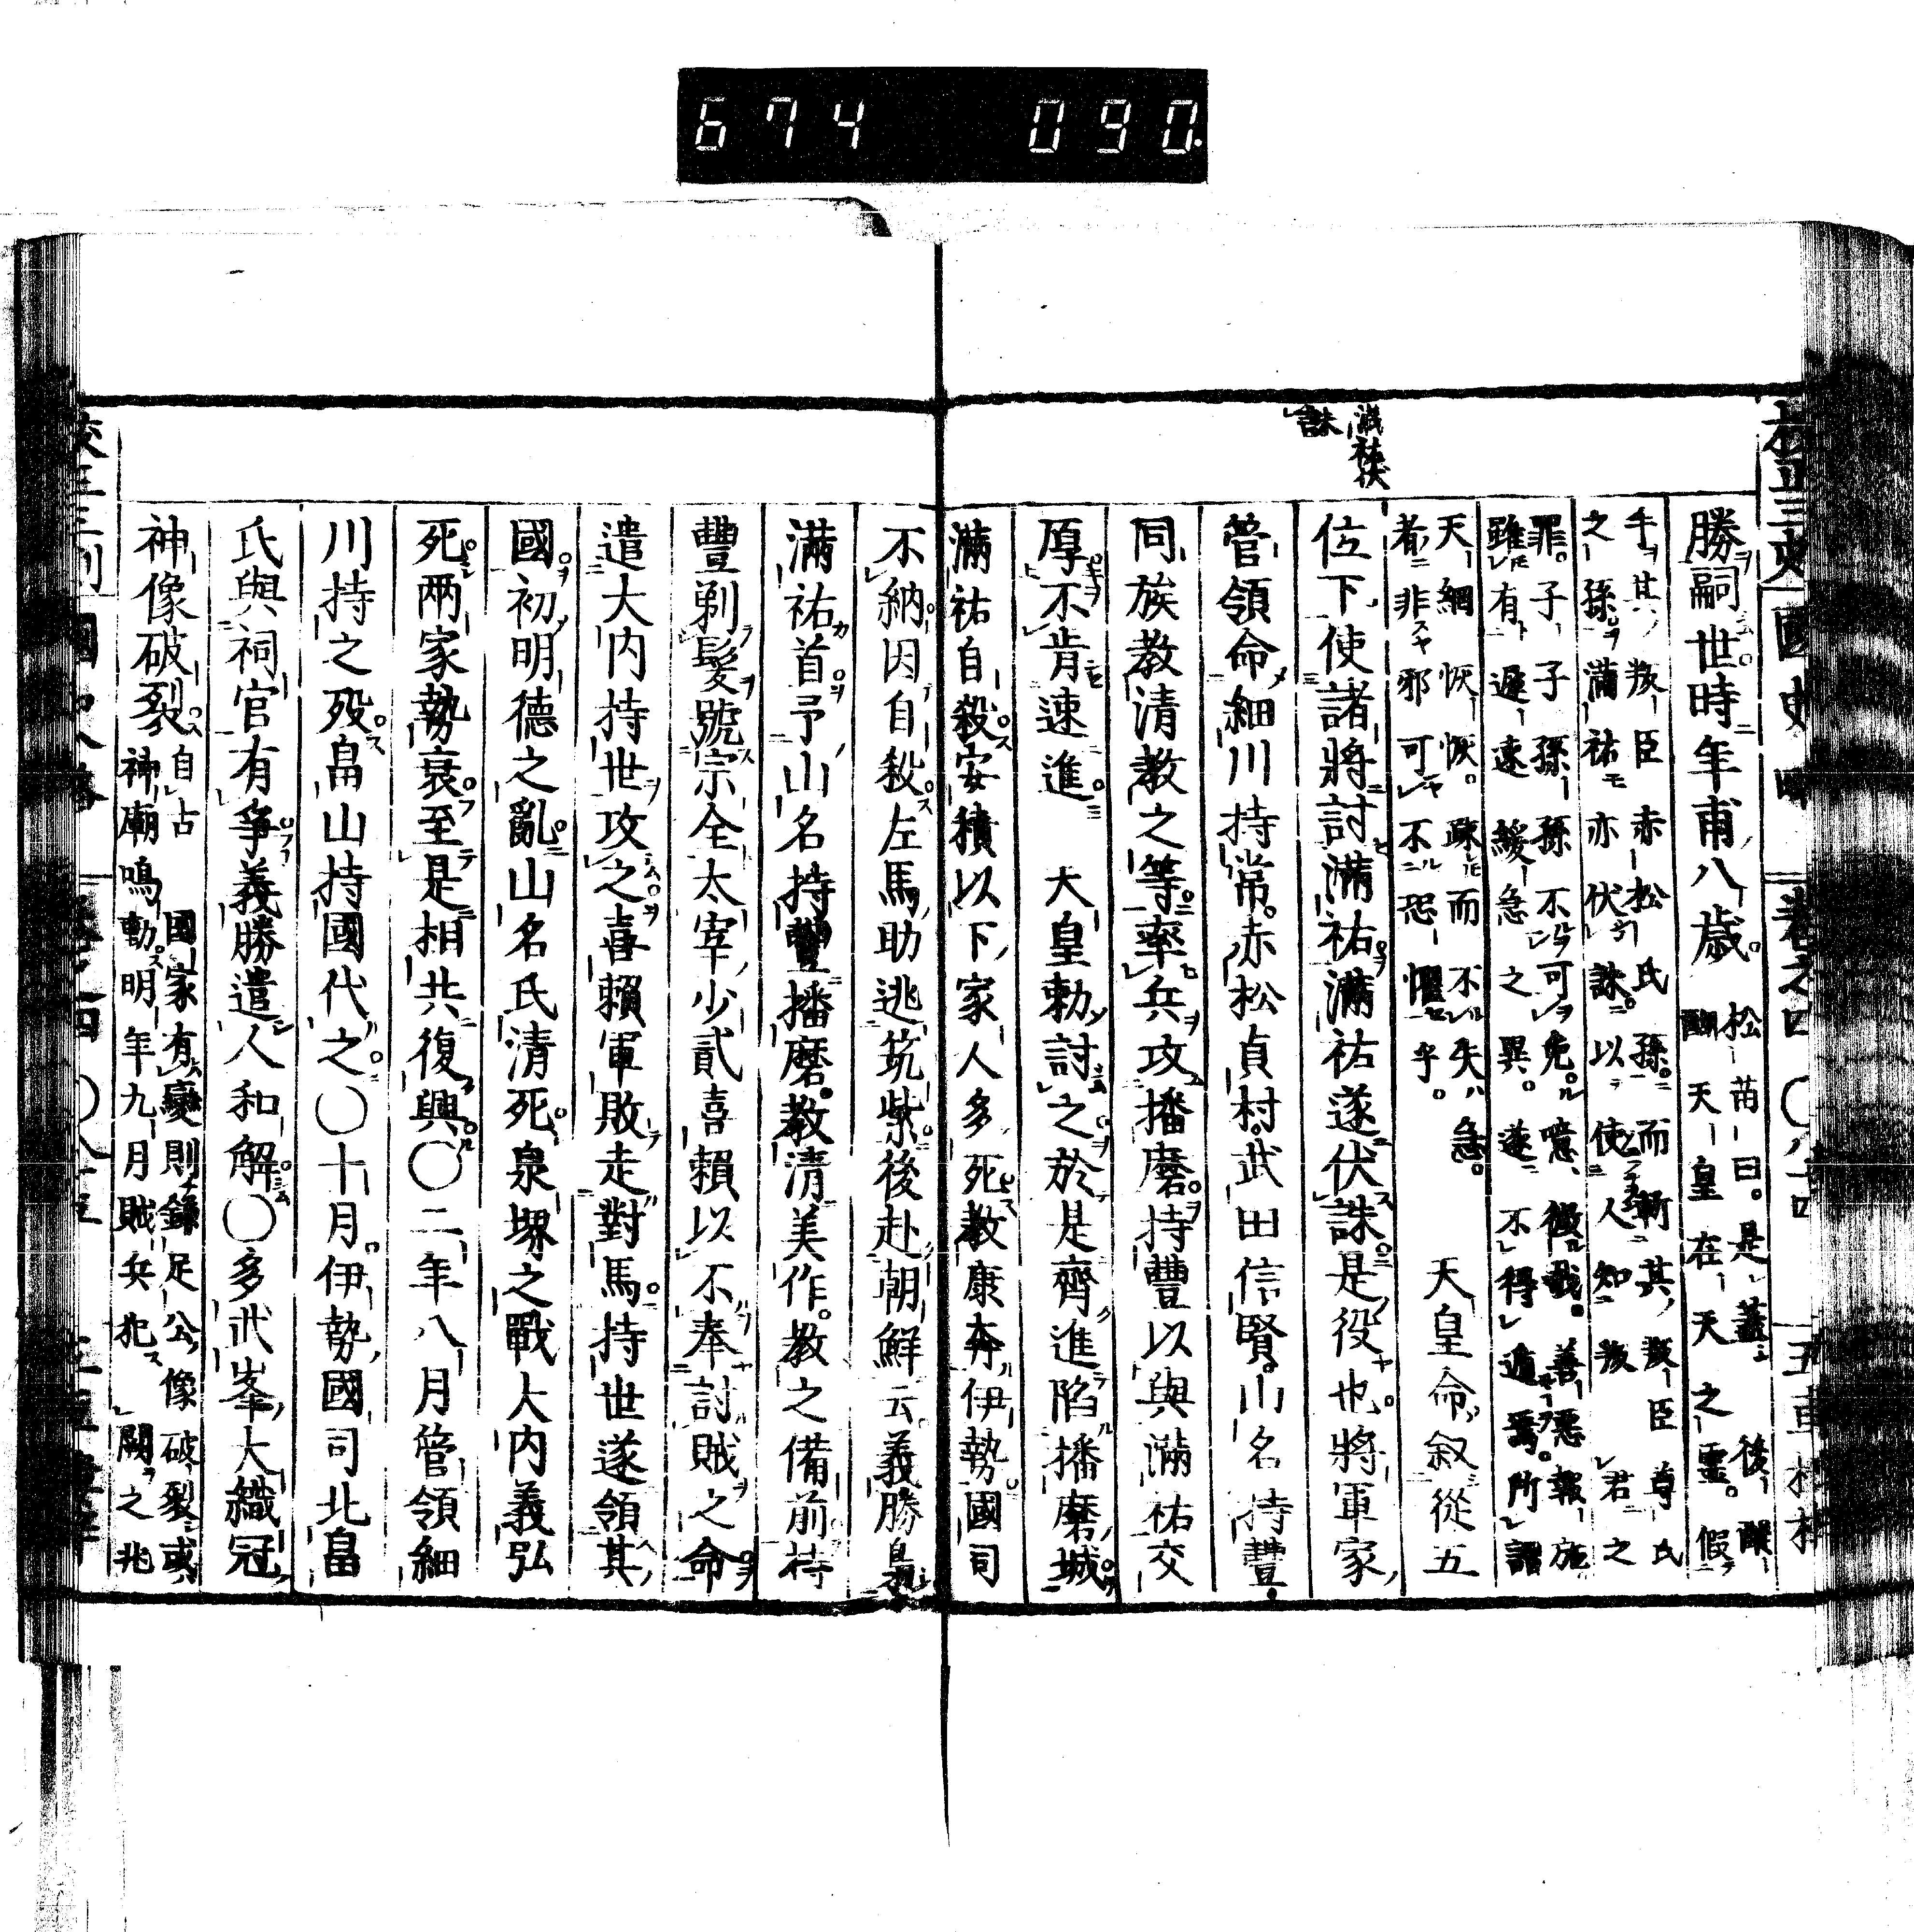 674 090
滿祐伏
誅
勝嗣世時年甫八歳
松苗曰是蓋後醍
醐天皇在天之靈假
手其叛臣赤松氏孫而斬其叛臣尊氏
之孫滿祐亦伏誅以使人知叛君之
罪子子孫孫不可免噫微哉善惡報施
雖有遲速緩急之異遂不得遁焉所謂
天網恢恢疎而不失急
者非邪可不恐懼乎
天皇命叙從五
位下使諸將討滿祐滿祐遂伏誅是役也將軍家
管領命細川持常赤松貞村武田信賢山名持豐
同族教清教之等率兵攻播磨持豐以與滿祐交
厚不肯速進　天皇勅討之於是齊進陷播磨城
滿祐自殺安積以下家人多死教康奔伊勢國司
不納因自殺左馬助逃筑紫後赴朝鮮云義勝梟
滿祐首予山名持豐播磨教清美作教之備前持
豐剃髮號宗全太宰少貳喜賴以不奉討賊之命
遣大内持世攻之喜賴軍敗走對馬持世遂領其
國初明德之亂山名氏清死泉堺之戰大内義弘
死兩家勢衰至是相共復興〇二年八月管領細
川持之歿畠山持國代之〇十月伊勢國司北畠
氏與祠官有爭義勝遣人和解〇多武峯大織冠
神像破裂
自古國家有變則鎌足公像破裂或
神廟鳴動明年九月賊兵犯闕之兆